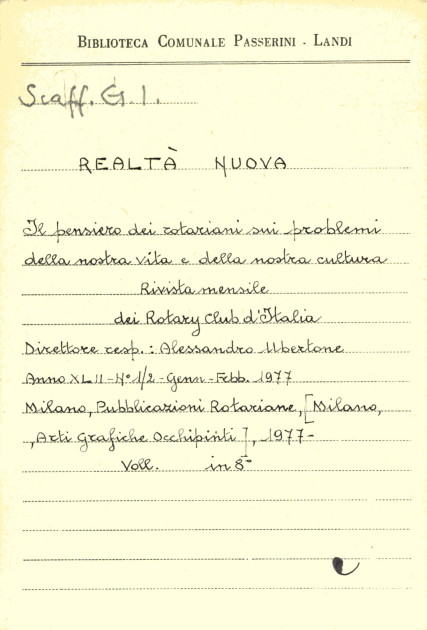 BIBLIOTECA COMUNALE PASSERINI - LANDI
Scaff. G. 1.
REALTÀ NUOVA
Il pensiero dei rotariani sui problemi
della nostra vita e della nostra cultura
Rivista mensile
dei Rotary Club d'Italia
Direttore resp.: Alessandro Ubertone
Anno XLII - N° 1/2 - Genn - Febb. 1977
Milano, Pubblicazioni Rotariane, [Milano,
, Arti Grafiche Occhipinti], 1977-
Voll. in 8°